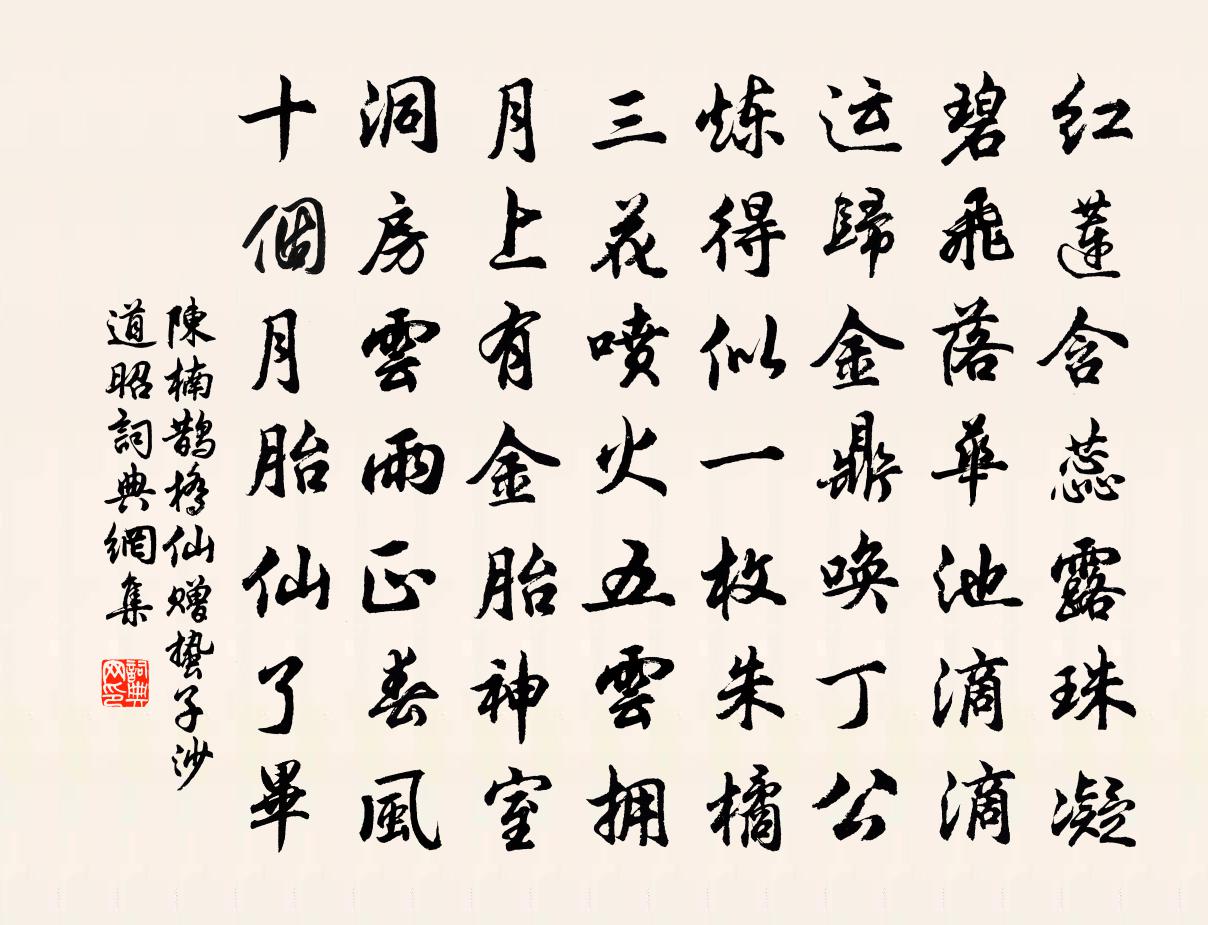 红莲含蕊露珠凝
碧飛落華池滴滴
运歸金鼎唤丁公
炼得似一枚朱橘
三花喷火五雲拥
月上有金胎神室
洞房雲雨正春風
十個月胎仙了畢
陳楠鵲橋仙赠蛰子沙
道昭詞典網集
詞典网印